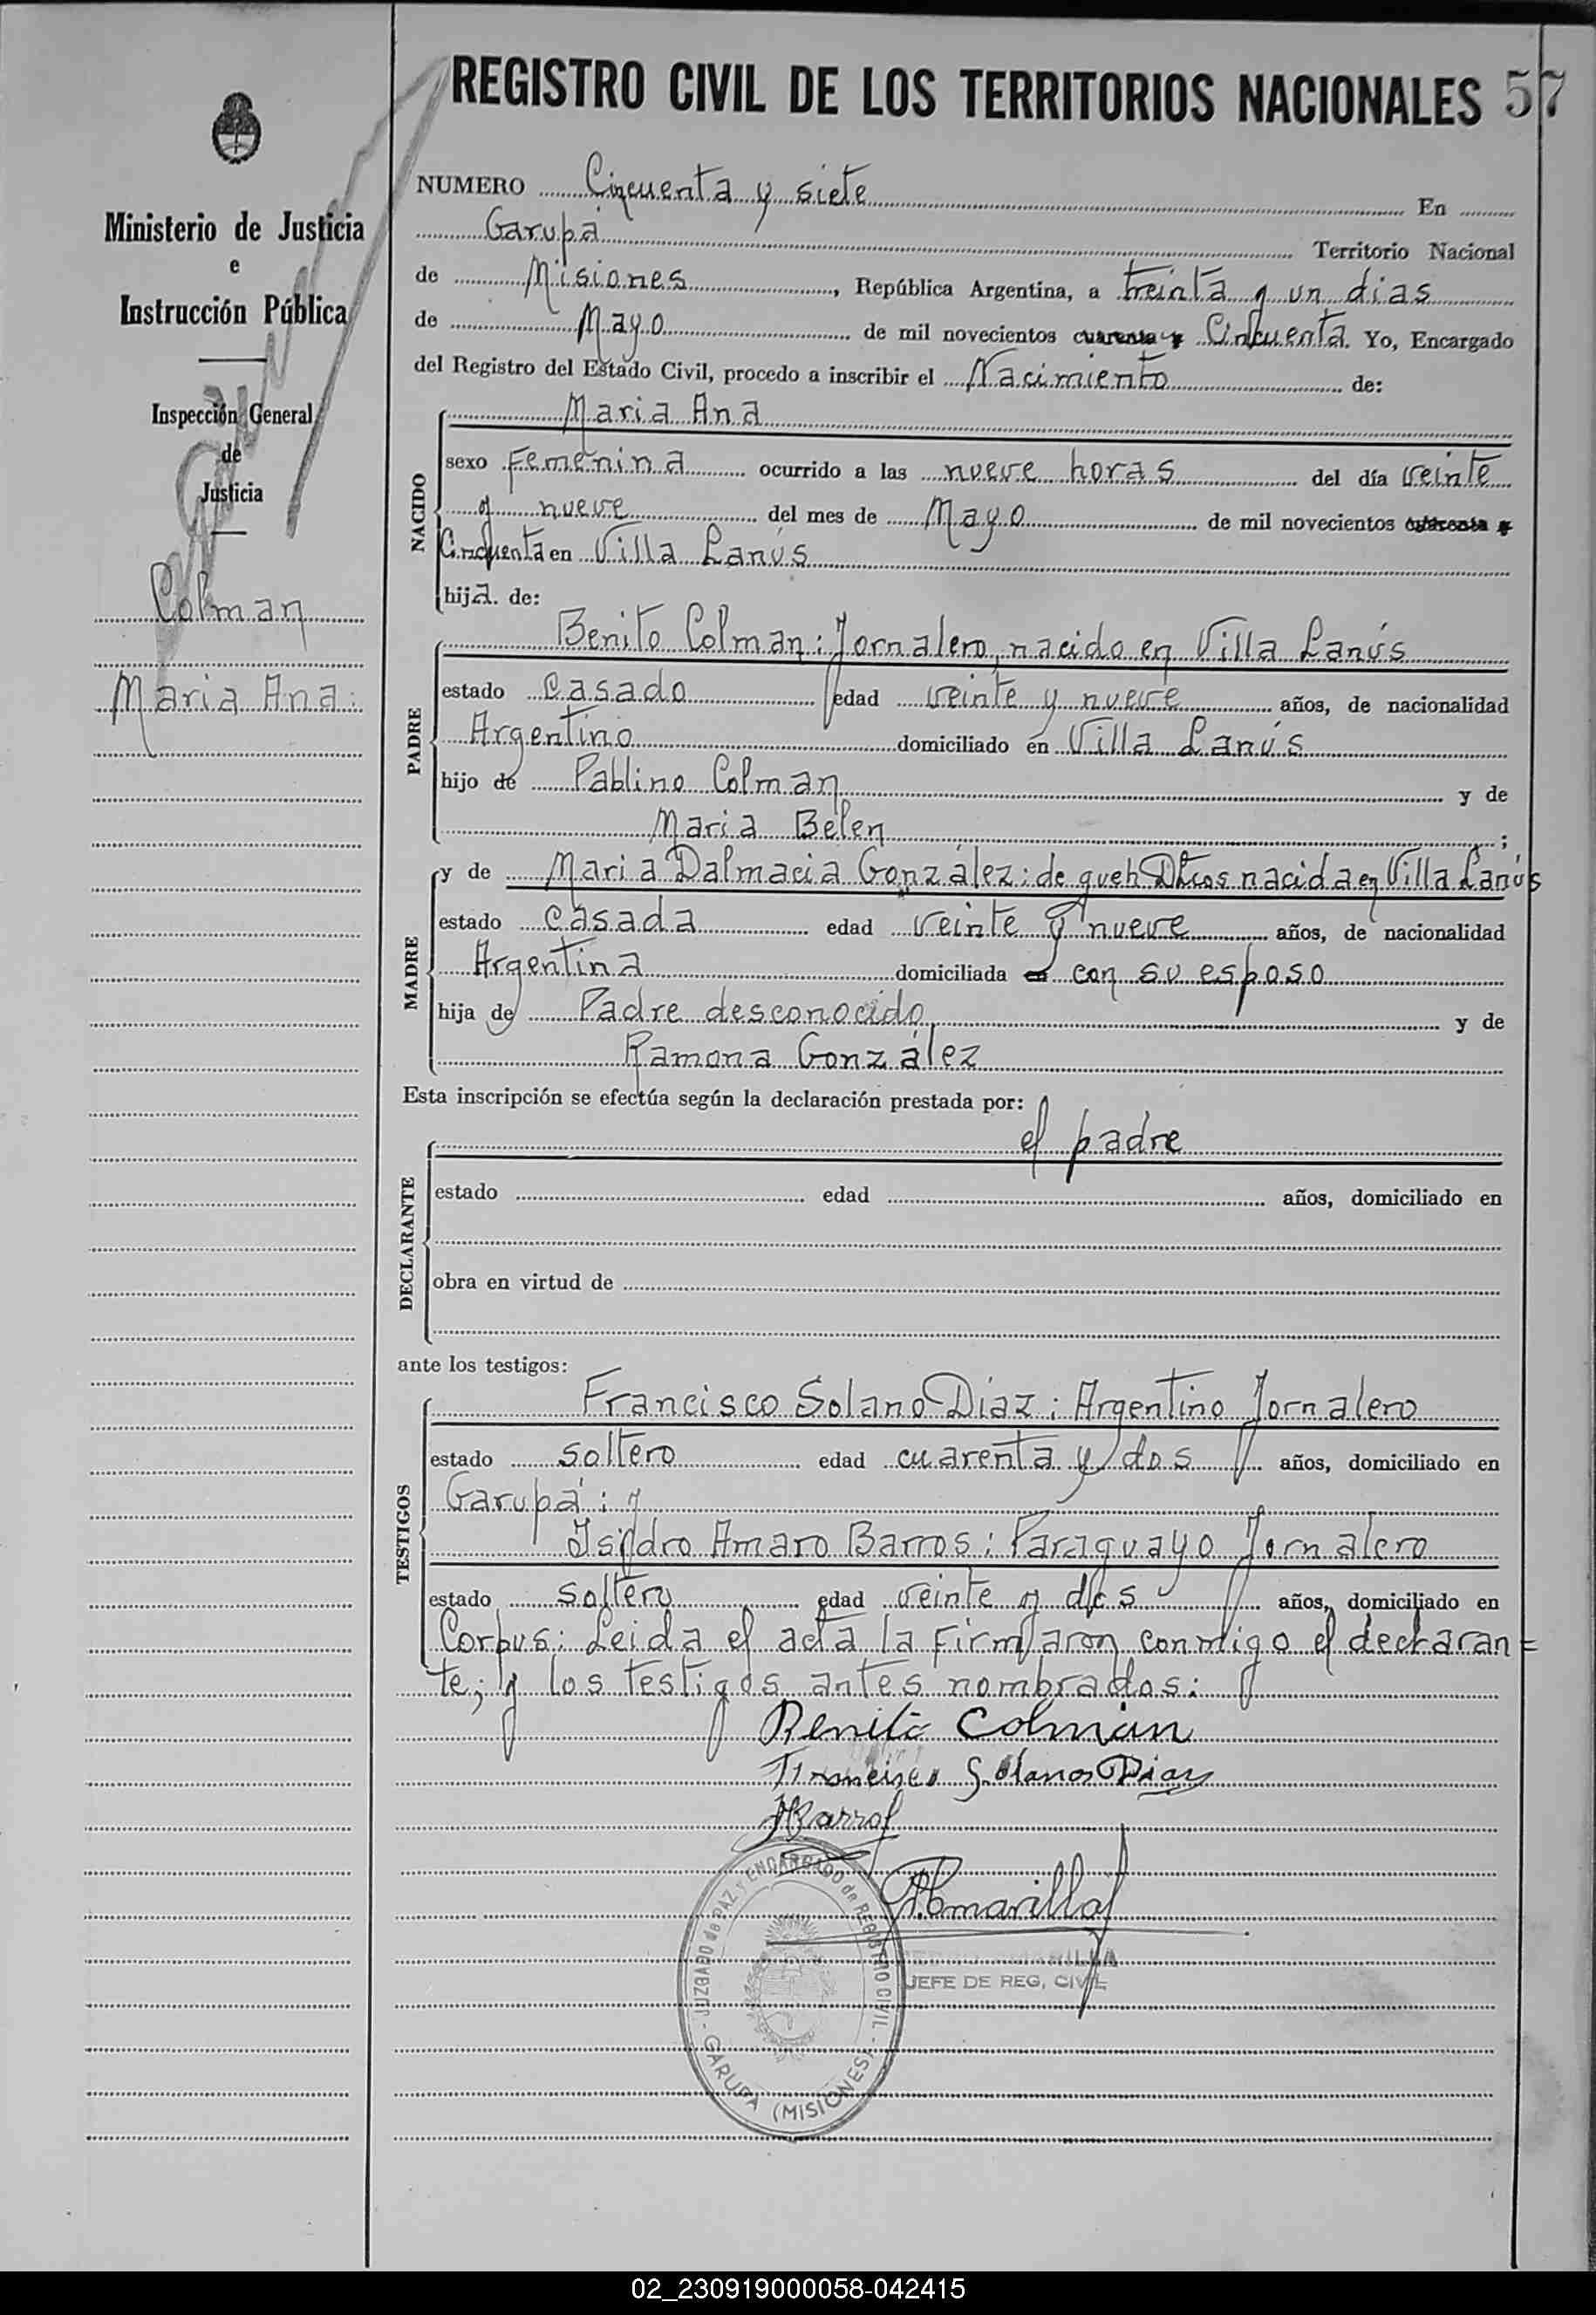 REGISTRO CIVIL DE LOS TERRITORIOS NACIONALES 57
Ministerio de Justicia
e
Instrucción Pública
Inspección General
de
Justicia
Colman
Maria Ana:
NUMERO Cincuenta y siete En
Garupá Territorio Nacional
de Misiones, República Argentina, a treinta y un dias
de Mayo de mil novecientos cuarenta y Cincuenta. Yo, Encargado
del Registro del Estado Civil, procedo a inscribir el Nacimiento de:
NACIDO
Maria Ana
sexo Femenina ocurrido a las nueve horas del día veinte
y nueve del mes de Mayo de mil novecientos cuarenta y
Cincuenta en Villa Lanús
hija. de:
PADRE
Benito Colman: Jornalero, nacido en Villa Lanús
estado casado edad veinte y nueve años, de nacionalidad
Argentino domiciliado en Villa Lanús
hijo de Pablino Colman y de
Maria Belen ;
MADRE
y de Maria Dalmacia González: de queh Dtcos nacida en Villa Lanús
estado casada edad veinte y nueve años, de nacionalidad
Argentina domiciliada en con su esposo
hija de Padre desconocido y de
Ramona González
Esta inscripción se efectúa según la declaración prestada por:
DECLARANTE
el padre
estado edad años, domiciliado en
obra en virtud de
ante los testigos:
TESTIGOS
Francisco Solano Diaz: Argentino Jornalero
estado soltero edad cuarenta y dos años, domiciliado en
Garupá: y
Isidro Amaro Barros: Paraguayo Jornalero
estado soltero edad veinte y dos años, domiciliado en
Corpus: Leida el acta la firmaron conmigo el declaran=
te; y los testigos antes nombrados:
Benito Colman
Francisco Solano Diaz
Barros
Amarilla
JUZGADO de PAZ y ENCARGADO de REGISTRO CIVIL - GARUPA (MISIONES) -
PEDRO AMARILLA
JEFE DE REG. CIVIL
02_230919000058-042415